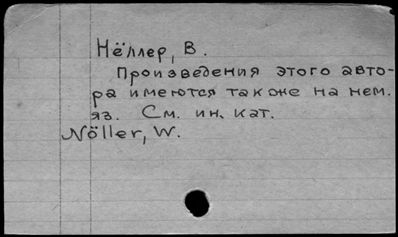 Нёллер, В.
Произведения этого авто-
ра имеются также на нем.
яз. См. ин. кат.
Nöller, W.